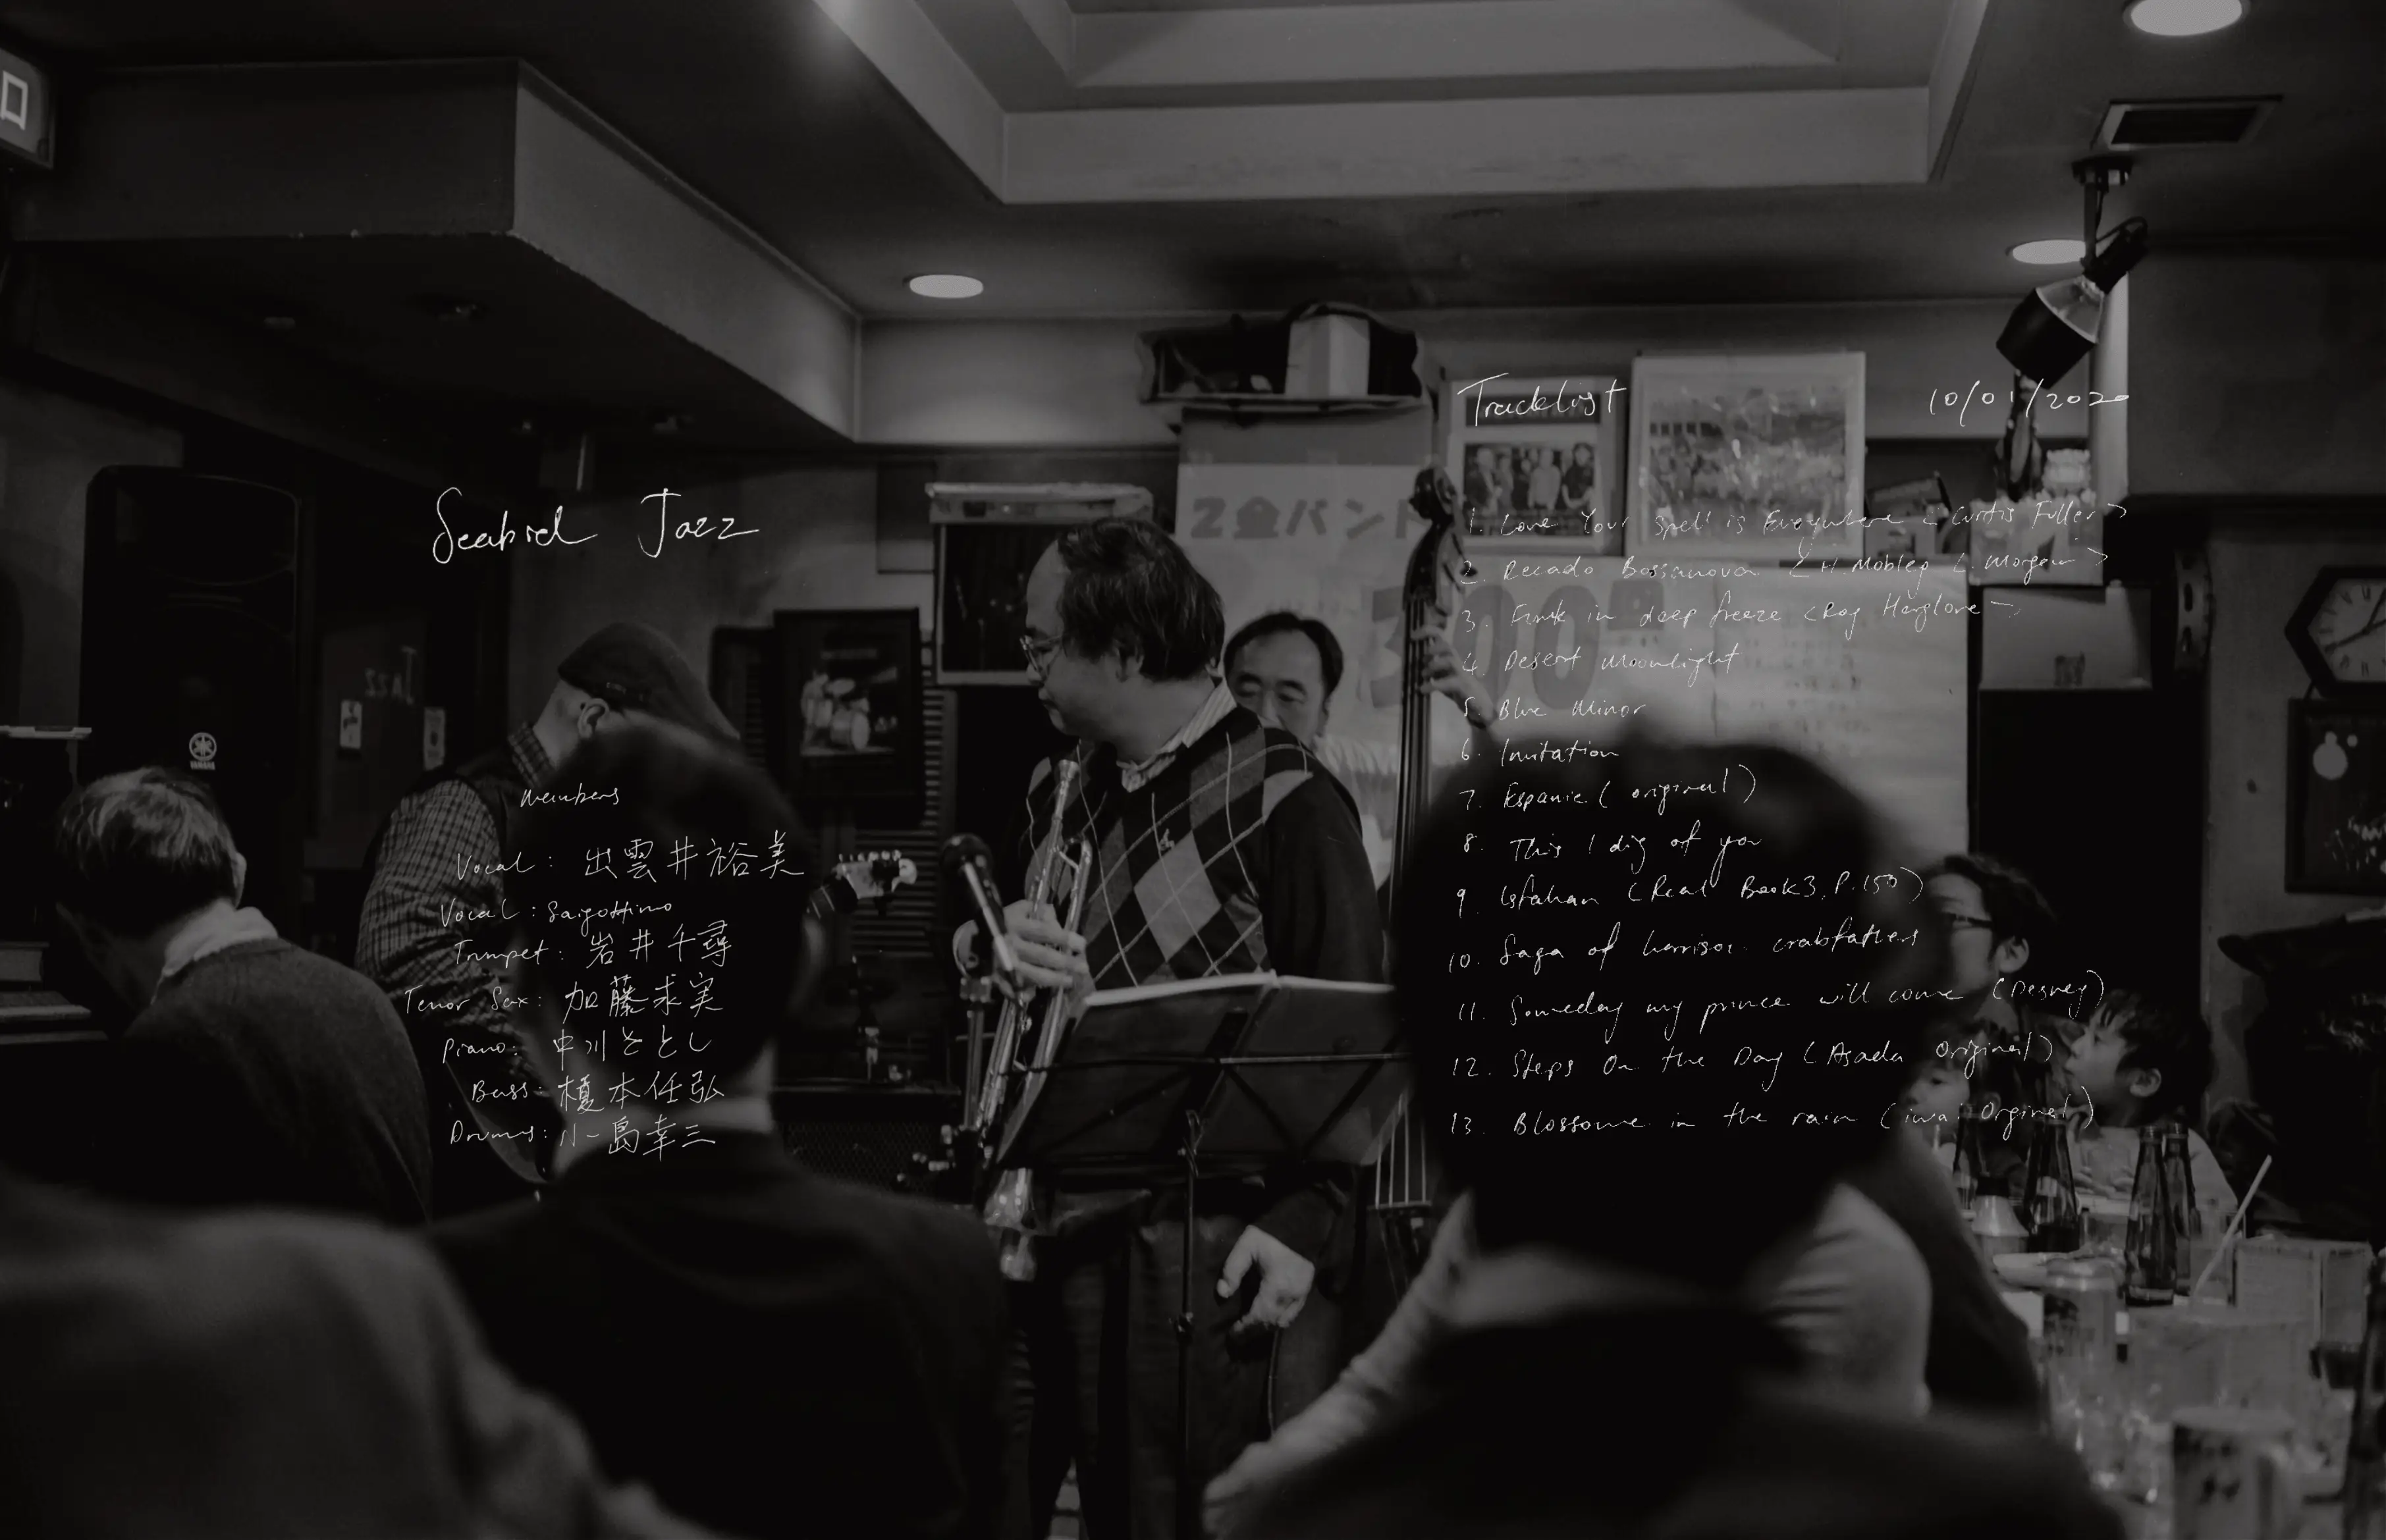 口
Seabird Jazz
Members
Vocal: 出雲井裕美
Vocal: Saigottimo
Trumpet: 岩井千尋
Tenor Sax: 加藤求実
Piano: 中川さとし
Bass: 榎本任弘
Drums: 小島幸三
JAZZ
YAMAHA
2金バンド
300円
Tracklist
10/01/2020
1. Love Your Spell is Everywhere <Curtis Fuller>
2. Recado Bossanova <H. Mobley L. Morgan>
3. Funk in deep freeze <Roy Harglove>
4. Desert Moonlight
5. Blue Minor
6. Invitation
7. Espanie (original)
8. This I dig of you
9. Isfahan (Real Book3, P.150)
10. Saga of harrison crabfathers
11. Someday my prince will come (Desney)
12. Steps On the Day (Asada Original)
13. Blossome in the rain (iwai Orginel)